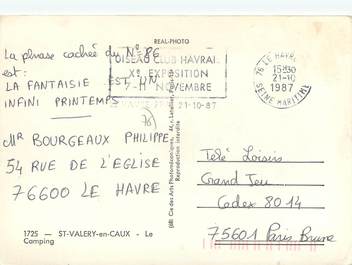 REAL-PHOTO
La phrase cachée du N° 86
est :
LA FANTAISIE EST UN
INFINI PRINTEMPS
(76)
MR BOURGEAUX PHILIPPE
54 RUE DE L'EGLISE
76600 LE HAVRE
1725 — ST-VALERY-en-CAUX - Le
Camping
OISEAU CLUB HAVRAIS
Xe EXPOSITION
NOVEMBRE
21-10-87
76 LE HAVRE
15H30
21-10
1987
SEINE MARITIME
Cie des Arts Photomécaniques
Reproduction interdite
Télé Loisirs
Grand Jeu
Cedex 8014
75601 Paris Brune